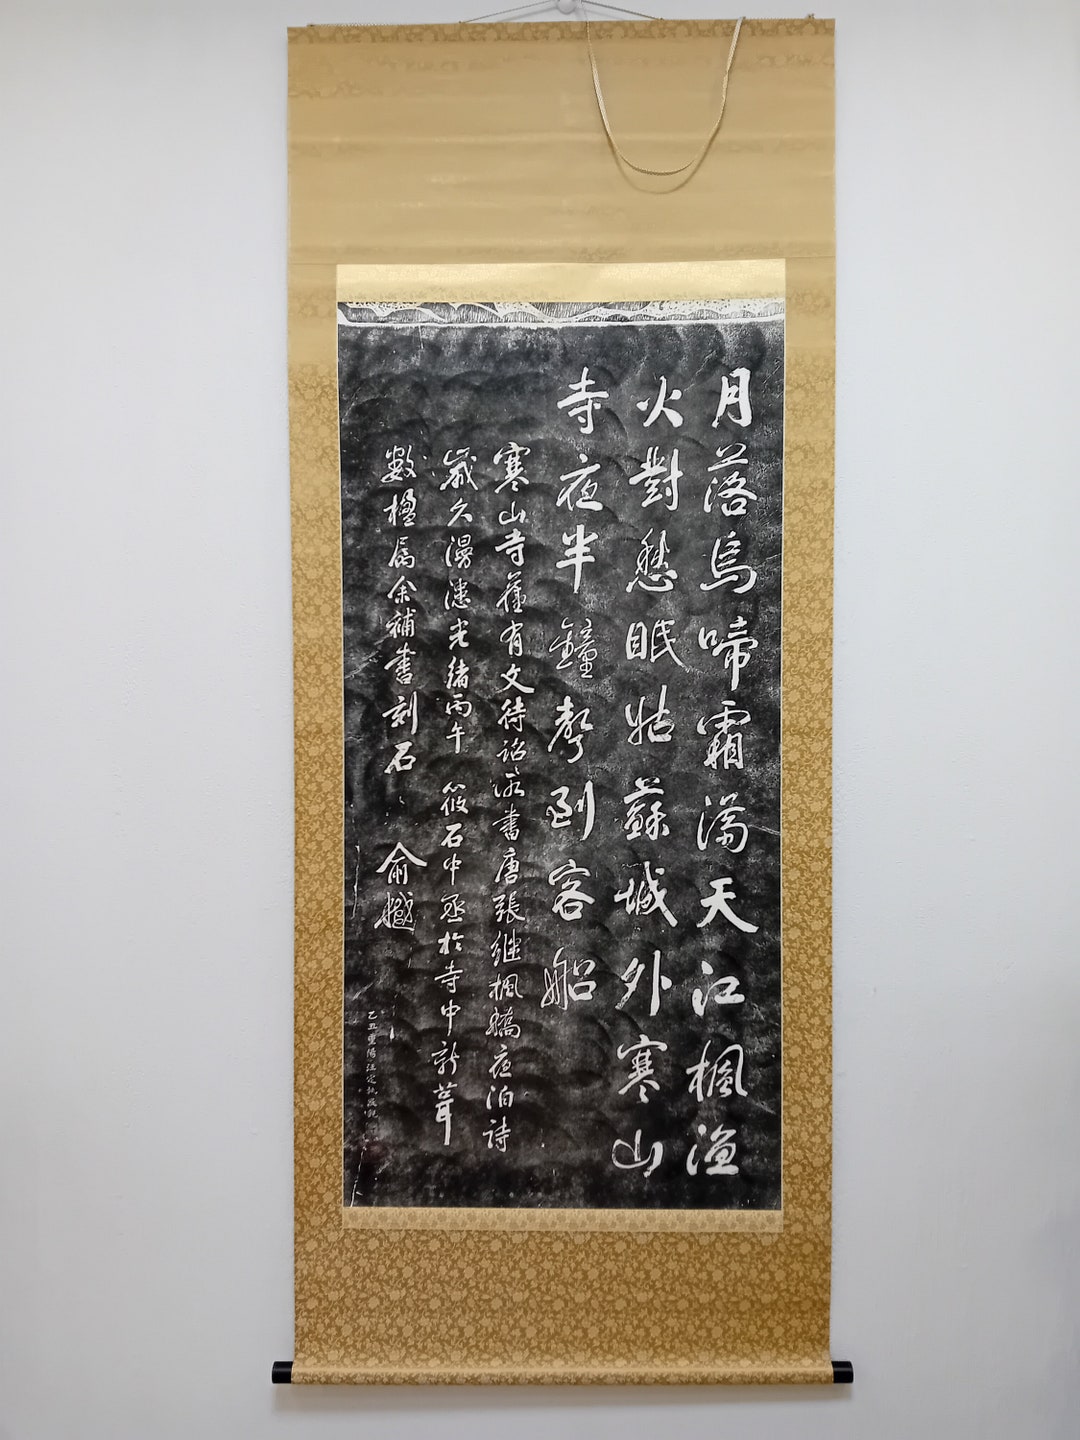 月落烏啼霜滿天江楓漁
火對愁眠姑蘇城外寒山
寺夜半鐘聲到客船
寒山寺舊有文待詔所書唐張繼楓橋夜泊詩
歲久漫漶光緒丙午筱石中丞於寺中新葺
數楹屬余補書刻石
俞樾
乙丑重陽汪定執展觀